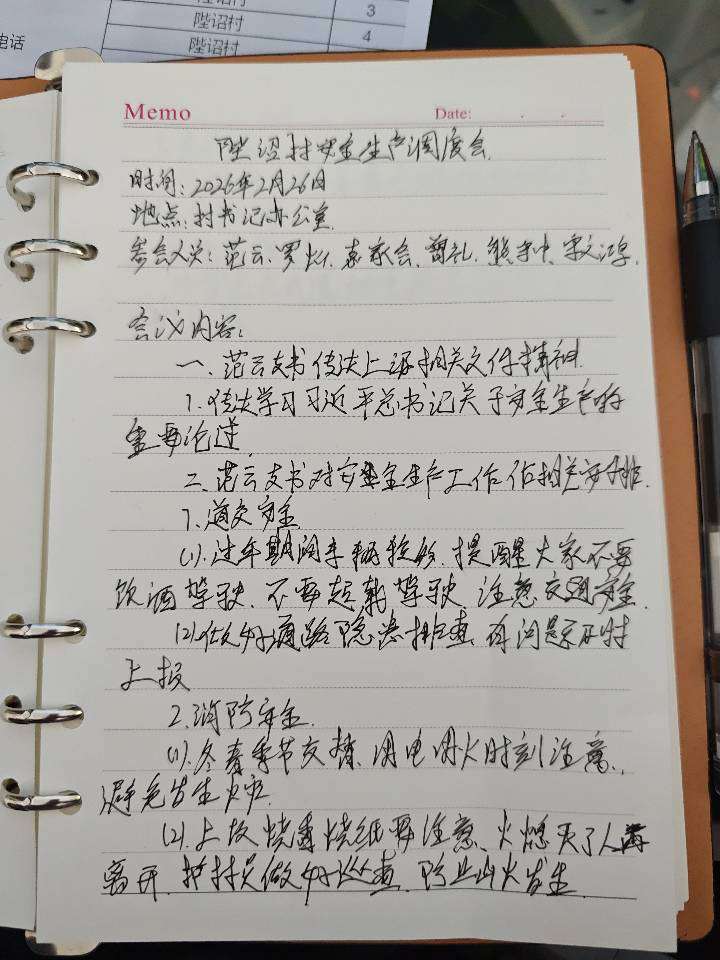 陛诏村
3
陛诏村
4
电话
陛诏村
Memo
Date:
陛诏村安全生产调度会
时间:2026年2月26日
地点:村书记办公室
参会人员:范云、罗灿、袁家会、
会议内容:
一、范云支书传达上级相关文件精神
1.传达学习习近平总书记关于安全生产的
重要论述
二、范云支书对安全生产工作作相关安排
1.道交安全
(1).过年期间车辆较多,提醒大家不要
饮酒驾驶、不要超载驾驶,注意交通安全.
(2).做好道路隐患排查,有问题及时
上报
2.消防安全.
(1).冬春季节交替,用电用火时刻注意,
避免发生火灾.
(2).上坟烧香烧纸要注意、火熄灭了人再
离开,护林员做好巡查,防止山火发生